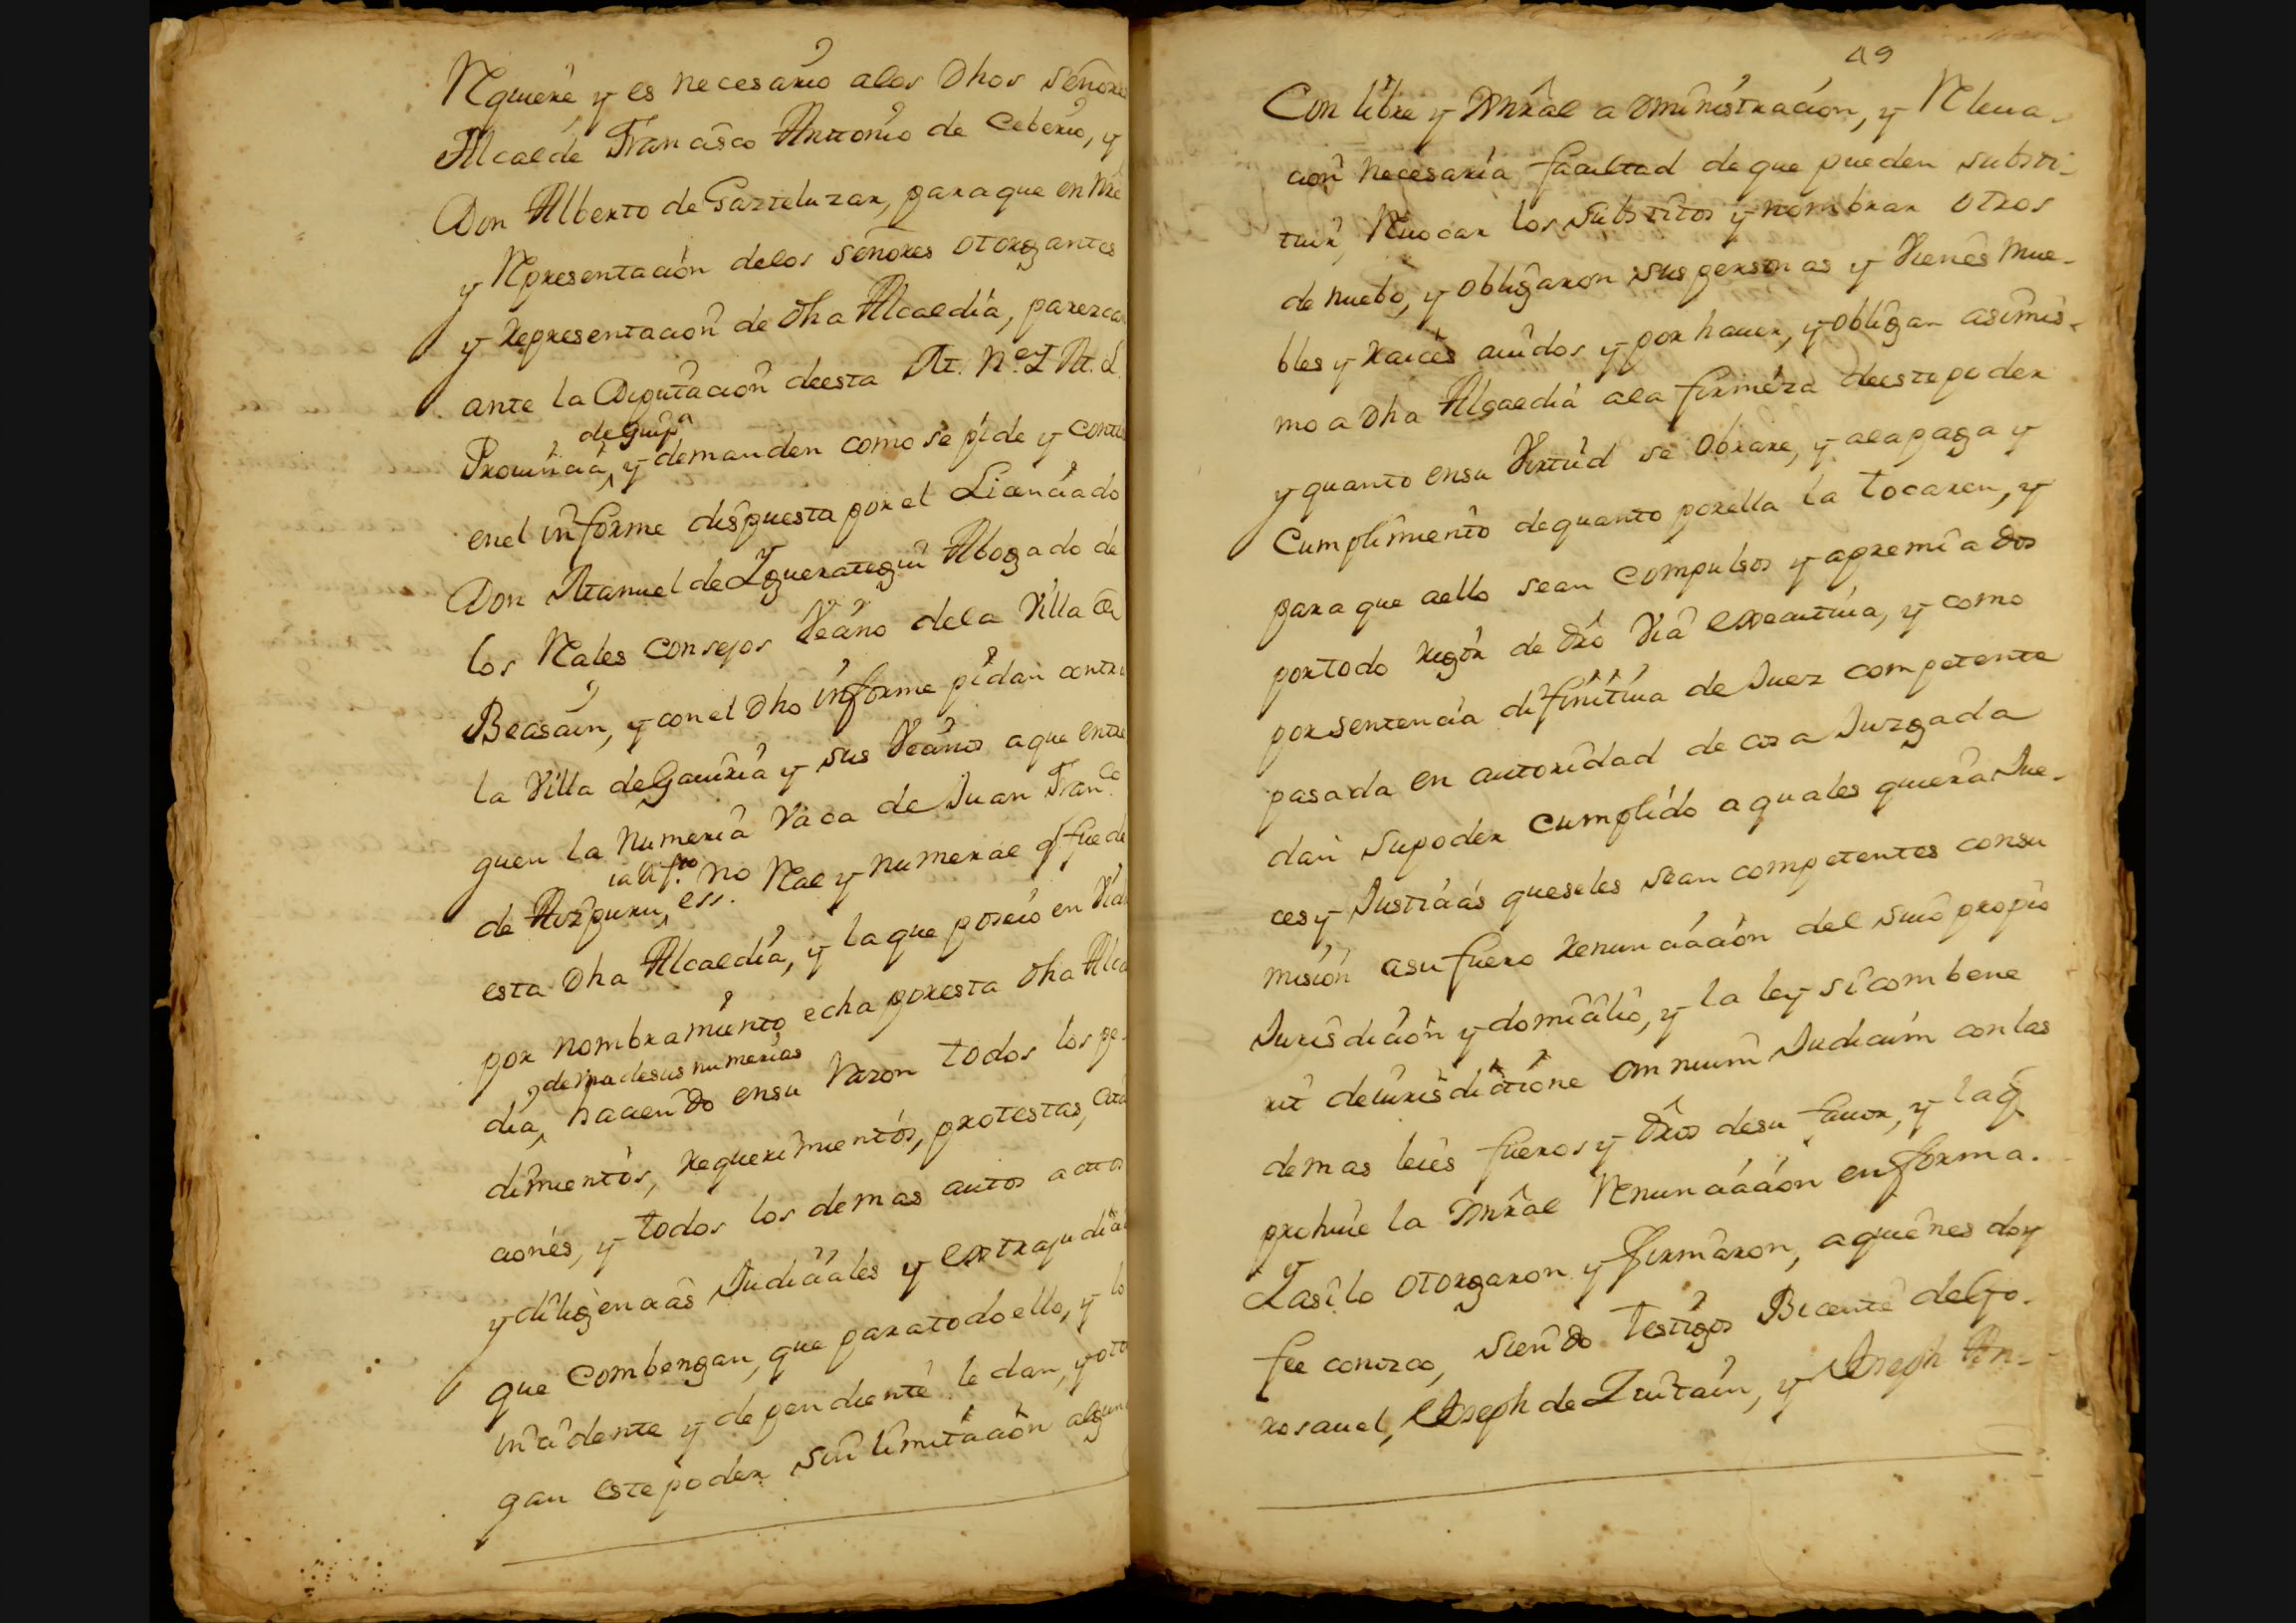 Requiere, y es necesario alos Dhos señore
Alcalde Francisco Antonio de Ceberio, y
Don Alberto de Gazteluzar, para que en nre
y Representación delos señores otorgantes
y representacion de Dha Alcaldia, parezca
ante la Diputacion deesta M. N. y M. L.
de Guipa
Prouincia, y demanden como se pide y conti
enel informe dispuesta por el Licenciado
Don Manuel de Yguerategui Abogado de
los Rales Consejos Vecino dela Villa de
Beasain, y con el Dho informe pidan contra
la Villa de Gauiria y sus Vecinos a que entre
guen la Numeria Vaca de Juan Franco
de Aizpuru, essno Ral y numeral q fue de
esta Dha Alcaldia, y la que poseio en Vida
por nombramiento echa por esta Dha Alca
y demas desus numerias
dia, haciendo ensu razon todos los pe-
dimientos, requerimientos, protestas, cita
ciones, y todos los demas autos actos
y diligencias Judiciales y extrajudicia
que Combengan, que para todo ello, y lo
incidente y dependiente le dan, y oto
gan este poder sin limitacion alguna
49
Con libre y Gnral administracion, y Releua-
cion necesaria facultad de que pueden substi-
tuir, Reuocar los Substitos y nombrar otros
de nuebo, y obligaron sus personas y Vienes mue-
bles y raices auidos y por hauer, y obligan asimis-
mo a Dha Alcaldia ala firmeza deeste poder
y quanto ensu Virtud se obrare, y ala paga y
Cumplimiento de quanto por ella la tocaren, y
para que aello sean Compulsos y apremiados
por todo rigor de Dro Via executiua, y como
por sentencia difinitiua de Juez competente
pasada en autoridad de cosa Juzgada
dan su poder cumplido a quales quiera Jue-
ces y Justicias queseles sean competentes consu
mision asu fuero renunciacion del suio propio
Jurisdicion y domicilio, y la ley si combene
rit de iurisdictione omnium Judicum con las
demas leies fueros y Dros desu fauor, y la q
prohiue la Gnral Renunciacion enforma.
Y asi lo otorgaron y firmaron, a quienes doy
fee conozco, siendo testigos Bicente de Go-
rosauel, Joseph de Zuitain, y Joseph An-